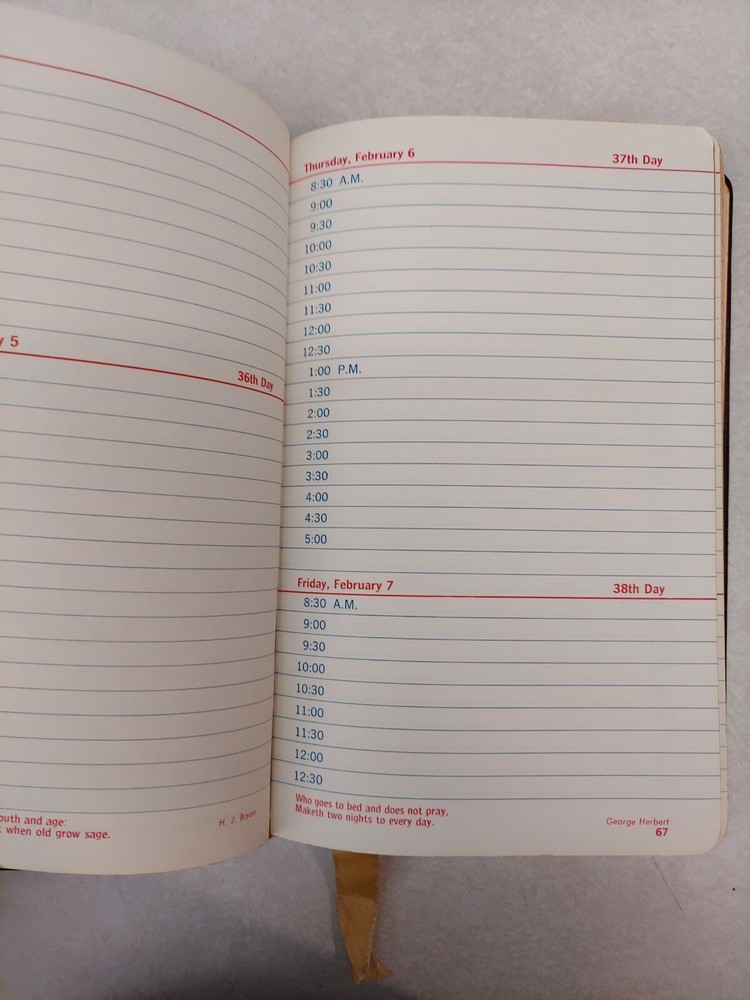 y 5
36th Day
outh and age:
when old grow sage.
H. J. Bryan
Thursday, February 6 37th Day
8:30 A.M.
9:00
9:30
10:00
10:30
11:00
11:30
12:00
12:30
1:00 P.M.
1:30
2:00
2:30
3:00
3:30
4:00
4:30
5:00
Friday, February 7 38th Day
8:30 A.M.
9:00
9:30
10:00
10:30
11:00
11:30
12:00
12:30
Who goes to bed and does not pray,
Maketh two nights to every day.
George Herbert
67